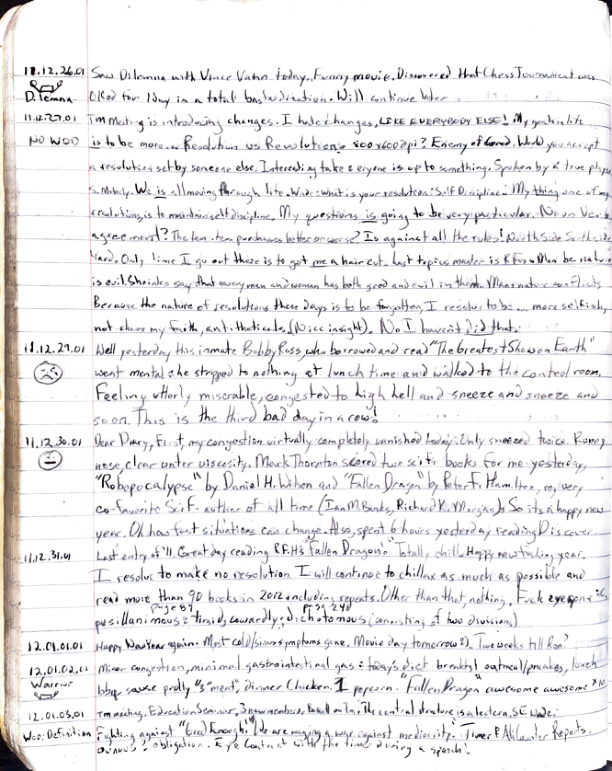 11.12.26.01 Saw Dilemna with Vince Vahn today. Funny movie. Discovered that Chess Tournament was
Dilemna OKed for 1 day in a total bastardization. Will continue later
11.12.27.01 Tm Meeting is introducing changes. I hate changes, LIKE EVERYBODY ELSE! My goal in life
NO WOD is to be more... Resolution vs Revolution? 800x600 dpi? Enemy of Good. Would you accept
a resolution set by someone else. Interesting take: everyone is up to something. Spoken by a true
We is all moving through life. Wade: what is your resolution? Self Discipline. My thing one of my
resolutions is to maintain self discipline. My questions is going to be very particular.
agreement? The items purchases better or worse? Is against all the rules! North Side South side
Yard. Only time I go out there is to get me a hair cut. Last topics master is Man be nature
is evil. Shrinks say that every man and woman has both good and evil in them. Mans nature conflicts
Because the nature of resolutions these days is to be forgotten, I resolve to be... more selfish,
not share my faith, (Nice insight). No I haven't did that.
11.12.29.01 Well yesterday this inmate Bobby Ross, who borrowed and read "The Greatest Show on Earth"
went mental: he stripped to nothing at lunch time and walked to the control room.
Feeling utterly miserable, congested to high hell and sneeze and sneeze and
so on. This is the third bad day in a row!
11.12.30.01 Dear Diary, First, my congestion virtually completely vanished today. Only sneezed twice. Runny
nose, clear water viscosity. Mark Thornton scored two sci fi books for me yesterday,
"Robopocalypse" by Daniel H. Wilson and "Fallen Dragon" by Peter F. Hamilton, my very
co-favorite Sci Fi author of all time (Ian M. Banks, Richard K. Morgan). So its a happy new
year. Oh how fast situations can change. Also, spent 6 hours yesterday reading Discover
11.12.31.01 Last entry of '11. Great day reading P.F.H's "Fallen Dragon". Totally chill. Happy new fucking year.
I resolve to make no resolution I will continue to chillax as much as possible and
read more than 90 books in 2012 including repeats. Other than that, nothing. Fuck everyone
page 89 page 240
pusillanimous: timid, cowardly; dichotomous (consisting of two divisions)
12.01.01.01 Happy New Year again. Most cold/sinus symptoms gone. Movie day tomorrow. Two weeks till Ron?
12.01.02.01 Minor congestion, minimal gastrointestinal gas: todays diet breakfast oatmeal/pancakes, lunch
Warrior bbq sauce prolly "3 meat", dinner Chicken. 1 popcorn. "Fallen Dragon" awesome awesome x10
12.01.03.01 Tm meeting, Education Seminar, The central structure is a lectern, SE Wade:
WOD: Definition Fighting against "Good Enough". We are waging a war against mediocrity. Timer & Ah Counter Reports.
obligation. Eye Contact with the timer during a speech!